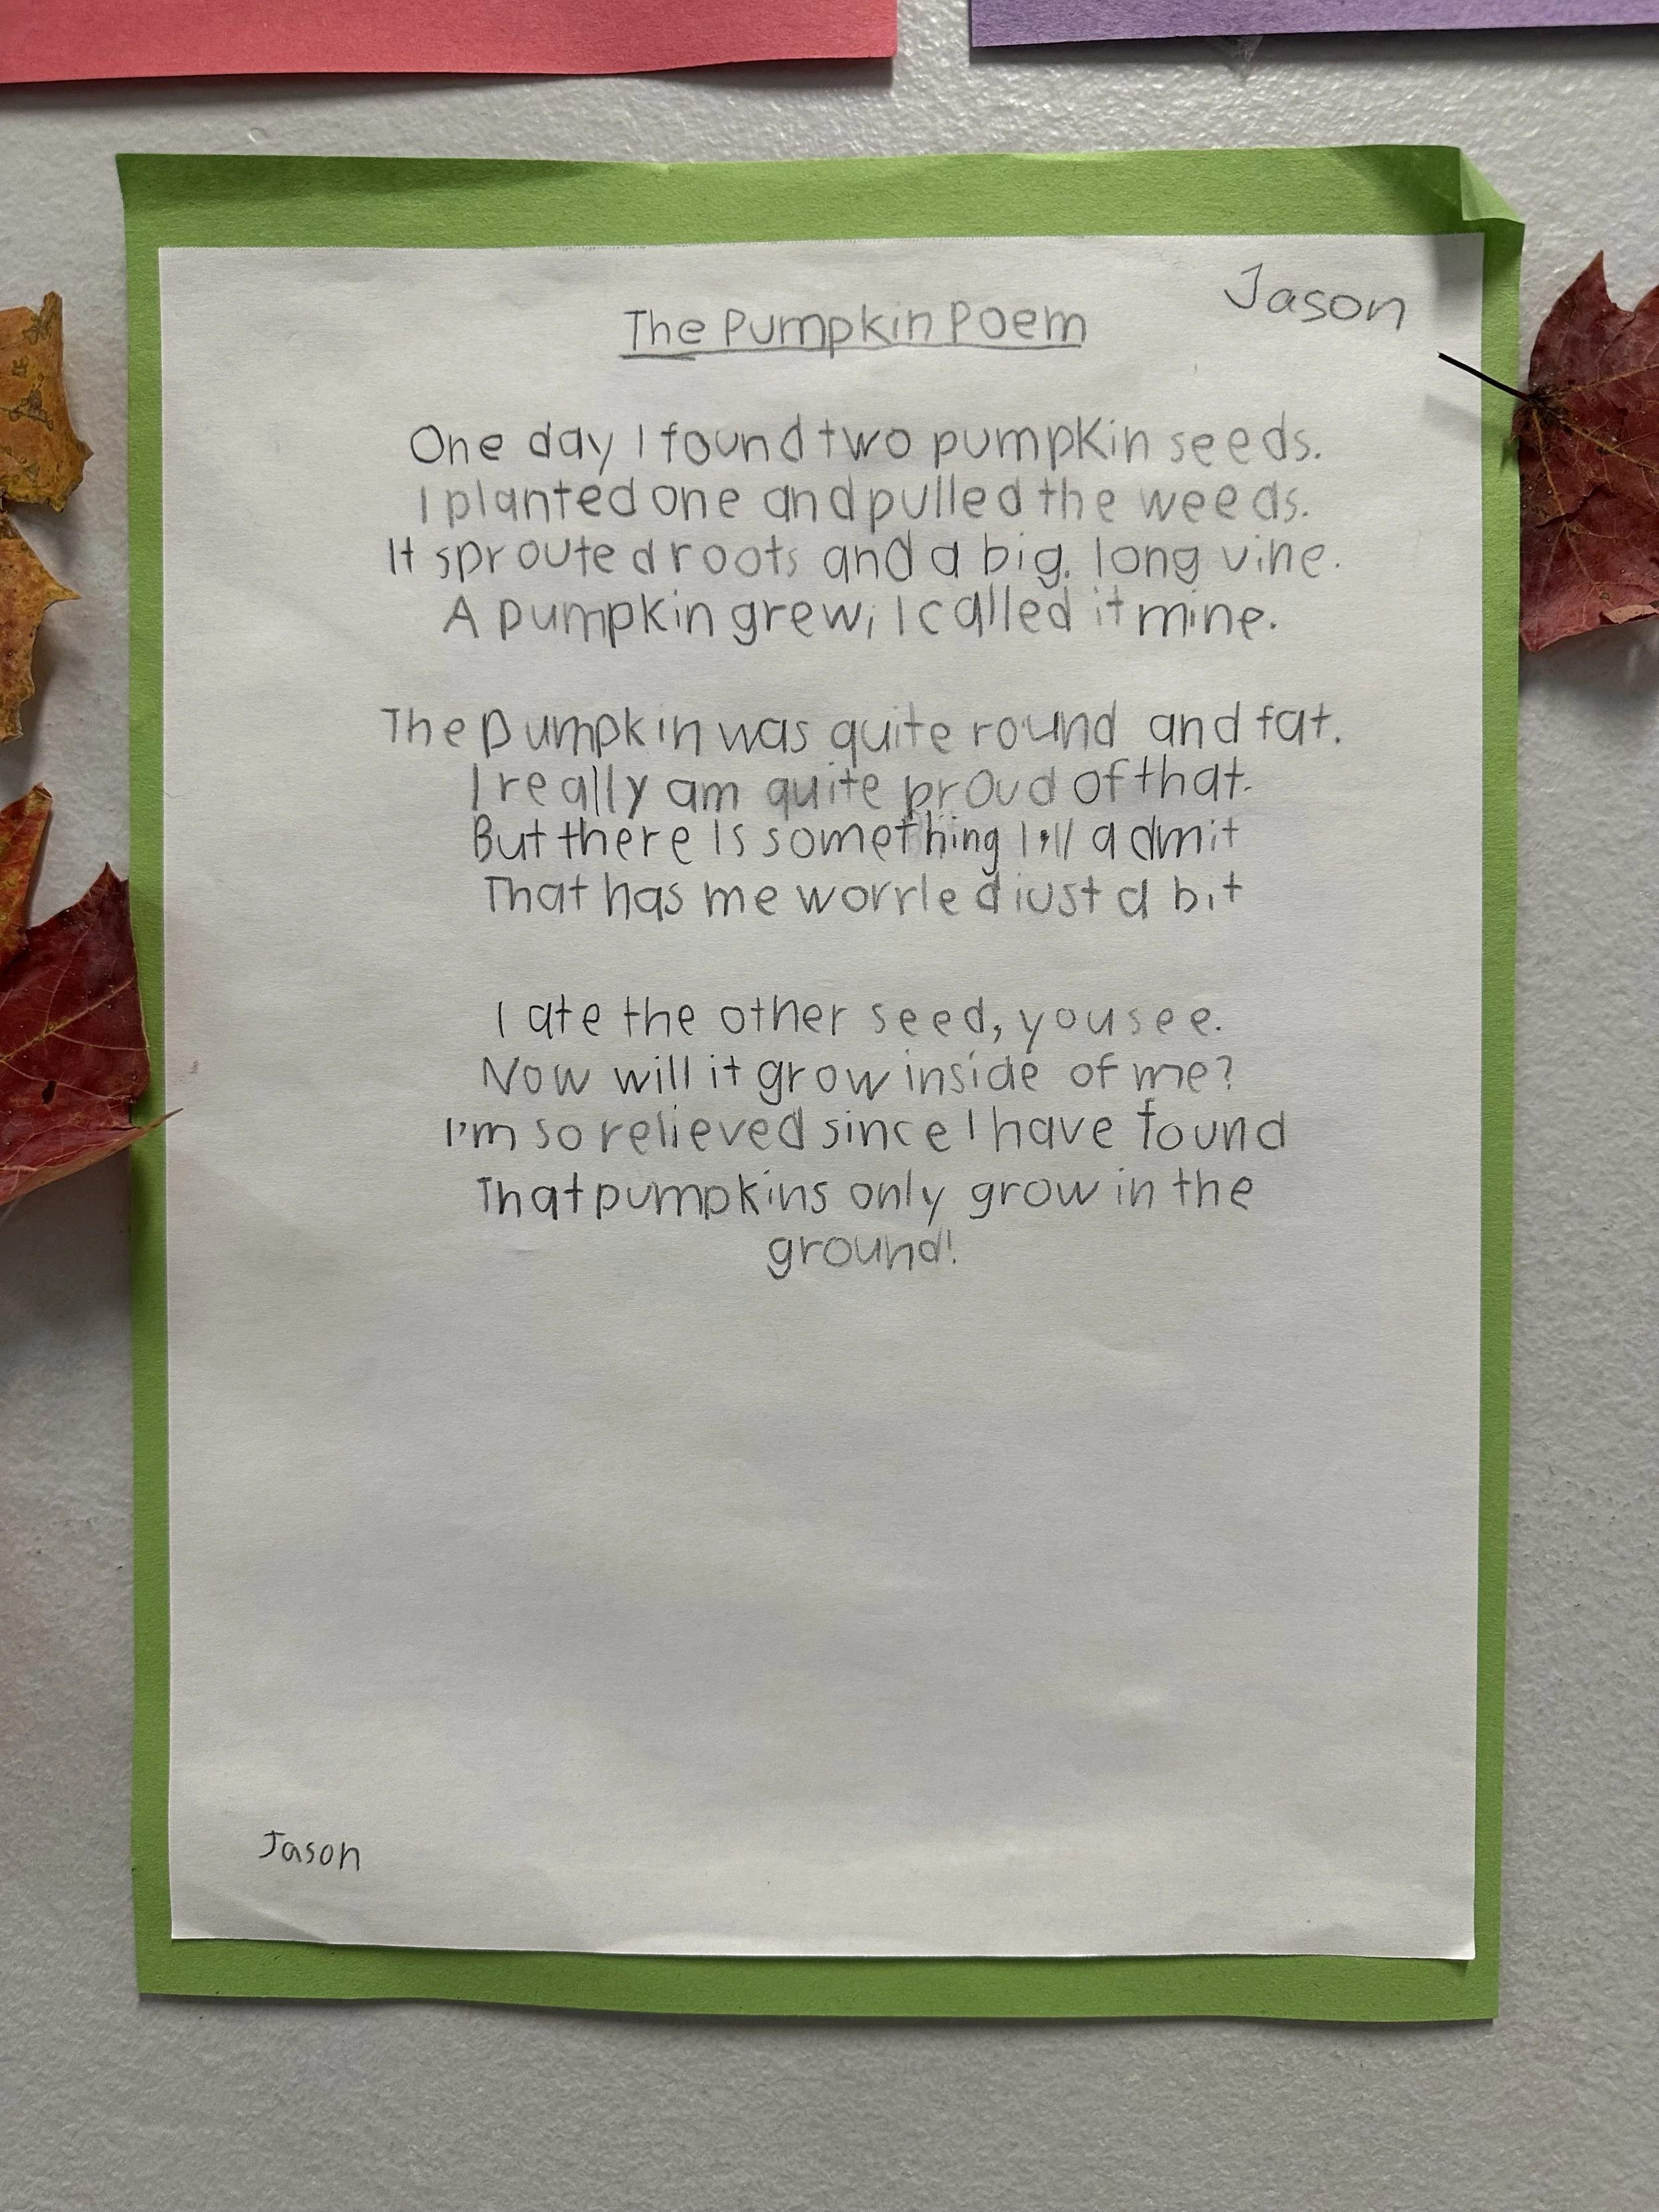 Jason
The Pumpkin Poem
One day I found two pumpkin seeds.
I planted one and pulled the weeds.
It sprouted roots and a big, long vine.
A pumpkin grew; I called it mine.
The pumpkin was quite round and fat.
I really am quite proud of that.
But there is something I'll admit
That has me worried just a bit
I ate the other seed, you see.
Now will it grow inside of me?
I'm so relieved since I have found
That pumpkins only grow in the
ground!
Jason